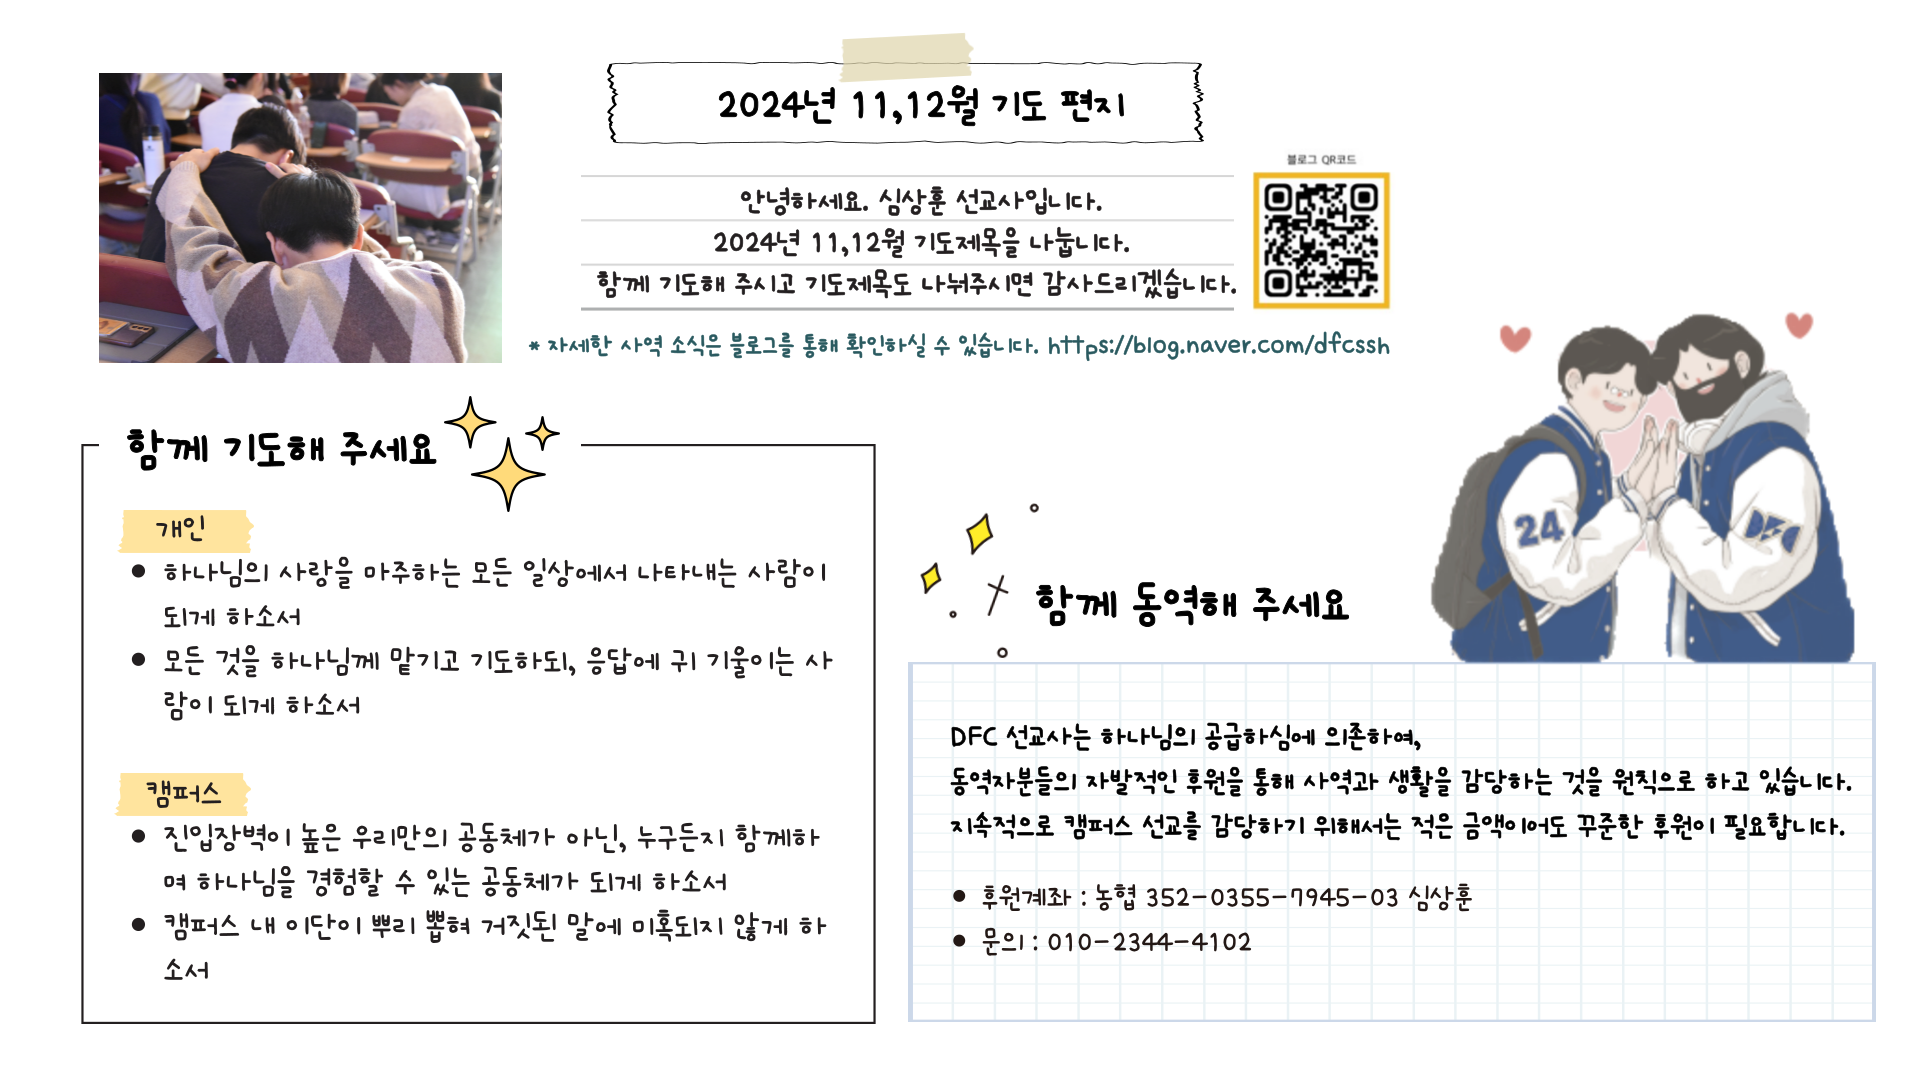 2024년 11,12월 기도 편지
블로그 QR코드
안녕하세요. 심상훈 선교사입니다.
2024년 11,12월 기도제목을 나눕니다.
함께 기도해 주시고 기도제목도 나눠주시면 감사드리겠습니다.
* 자세한 사역 소식은 블로그를 통해 확인하실 수 있습니다. https://blog.naver.com/dfcssh
함께 기도해 주세요
개인
● 하나님의 사랑을 마주하는 모든 일상에서 나타내는 사람이
되게 하소서
● 모든 것을 하나님께 맡기고 기도하되, 응답에 귀 기울이는 사
람이 되게 하소서
캠퍼스
● 진입장벽이 높은 우리만의 공동체가 아닌, 누구든지 함께하
며 하나님을 경험할 수 있는 공동체가 되게 하소서
● 캠퍼스 내 이단이 뿌리 뽑혀 거짓된 말에 미혹되지 않게 하
소서
24
DFC
함께 동역해 주세요
DFC 선교사는 하나님의 공급하심에 의존하여,
동역자분들의 자발적인 후원을 통해 사역과 생활을 감당하는 것을 원칙으로 하고 있습니다.
지속적으로 캠퍼스 선교를 감당하기 위해서는 적은 금액이어도 꾸준한 후원이 필요합니다.
● 후원계좌 : 농협 352-0355-7945-03 심상훈
● 문의 : 010-2344-4102